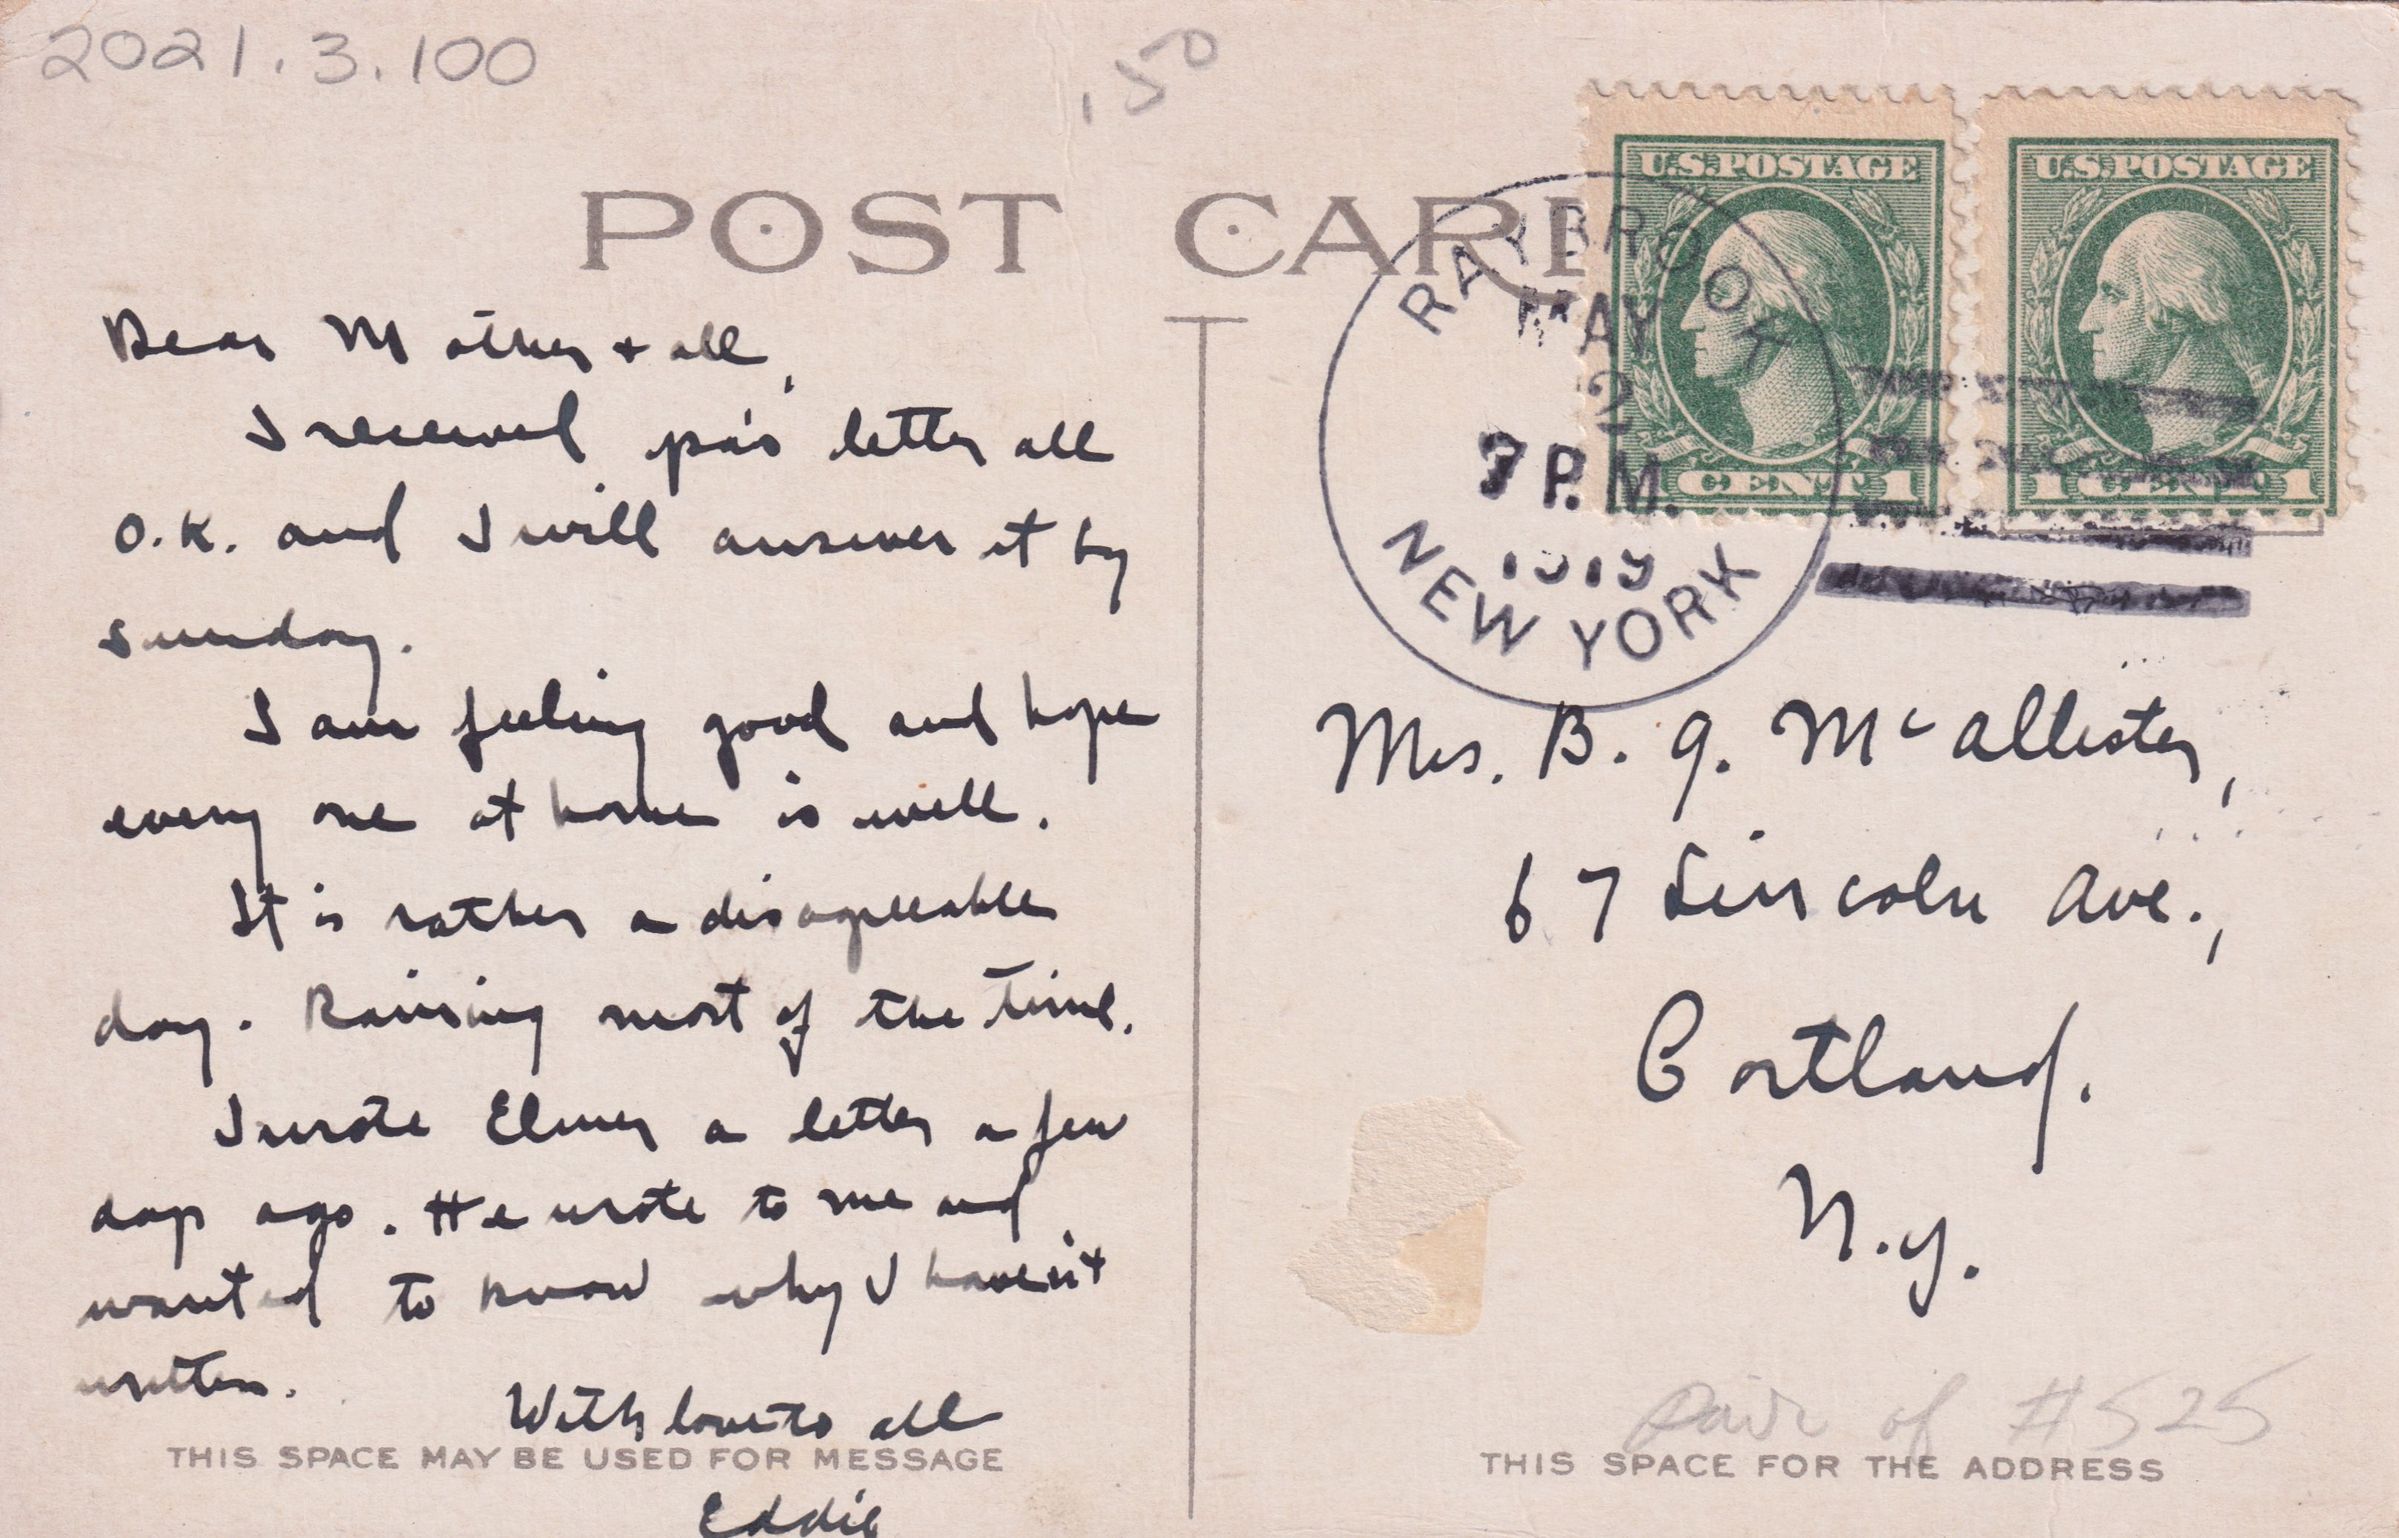 2021.3.100
.50
POST CARD
U.S. POSTAGE
1 CENT 1
U.S. POSTAGE
1 CENT 1
RAYBROOK
MAY
2
7 P.M.
1919
NEW YORK
Dear Mother + all,
I received pa's letter all
O.K. and I will answer it by
Sunday.
I am feeling good and hope
every one at home is well.
It is rather a disagreeable
day. Raining most of the time.
I wrote Elmer a letter a few
days ago. He wrote to me and
wanted to know why I haven't
written.
With love to all
Eddie
THIS SPACE MAY BE USED FOR MESSAGE
Mrs. B. G. McAllister,
67 Lincoln Ave.,
Cortland.
N.Y.
Pair of #525
THIS SPACE FOR THE ADDRESS